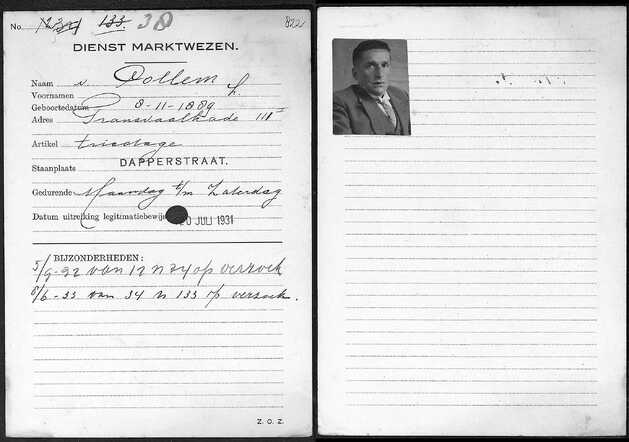 No. 123 133. 38 822
DIENST MARKTWEZEN.
Naam v. Dollem
Voornamen L.
Geboortedatum 8-11-1889
Adres Transvaalkade III
Artikel tricotage
Staanplaats DAPPERSTRAAT.
Gedurende Maandag t/m Zaterdag
Datum uitreiking legitimatiebewijs 20 JULI 1931
BIJZONDERHEDEN:
5/9-32 van 12 n 34 op verzoek
6/6-33 van 34 n 133 op verzoek.
Z. O. Z.